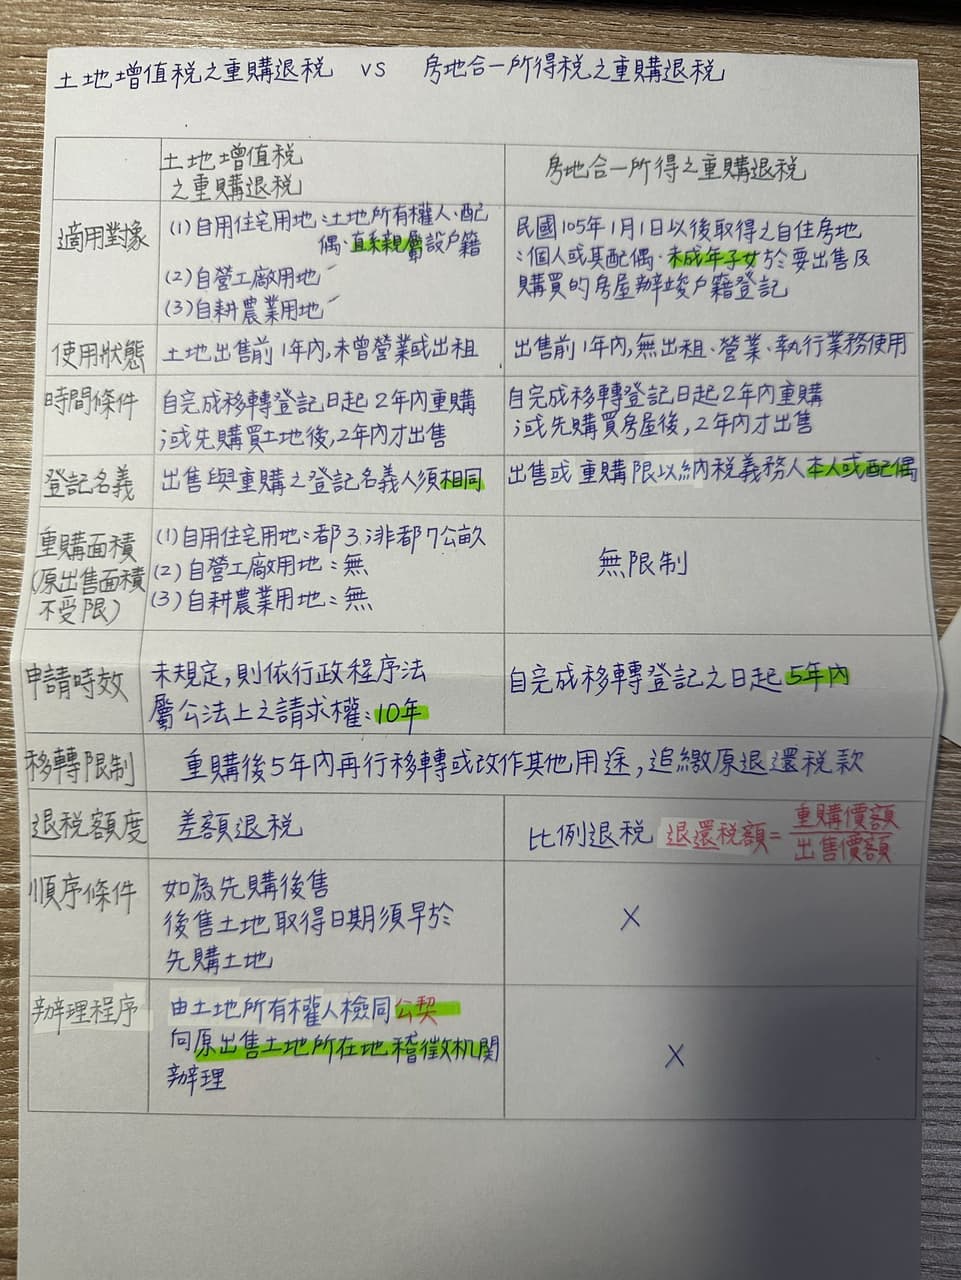 土地增值稅之重購退稅 vs 房地合一所得稅之重購退稅
土地增值稅
之重購退稅
房地合一所得之重購退稅
適用對像
(1)自用住宅用地:土地所有權人、配
偶、直系親屬設戶籍
(2)自營工廠用地
(3)自耕農業用地
民國105年1月1日以後取得之自住房地
:個人或其配偶、未成年子女於要出售及
購買的房屋辦竣戶籍登記
使用狀態
土地出售前1年內,未曾營業或出租
出售前1年內,無出租、營業、執行業務使用
時間條件
自完成移轉登記日起2年內重購
;或先購買土地後,2年內才出售
自完成移轉登記日起2年內重購
;或先購買房屋後,2年內才出售
登記名義
出售與重購之登記名義人須相同
出售或重購限以納稅義務人本人或配偶
重購面積
(原出售面積
不受限)
(1)自用住宅用地:都3;非都7公畝
(2)自營工廠用地:無
(3)自耕農業用地:無
無限制
申請時效
未規定,則依行政程序法
屬公法上之請求權:10年
自完成移轉登記之日起5年內
移轉限制
重購後5年內再行移轉或改作其他用途,追繳原退還稅款
退稅額度
差額退稅
比例退稅 退還稅額=重購價額
出售價額
順序條件
如為先購後售
後售土地取得日期須早於
先購土地
X
辦理程序
由土地所有權人檢同公契
向原出售土地所在地稽徵机関
辦理
X